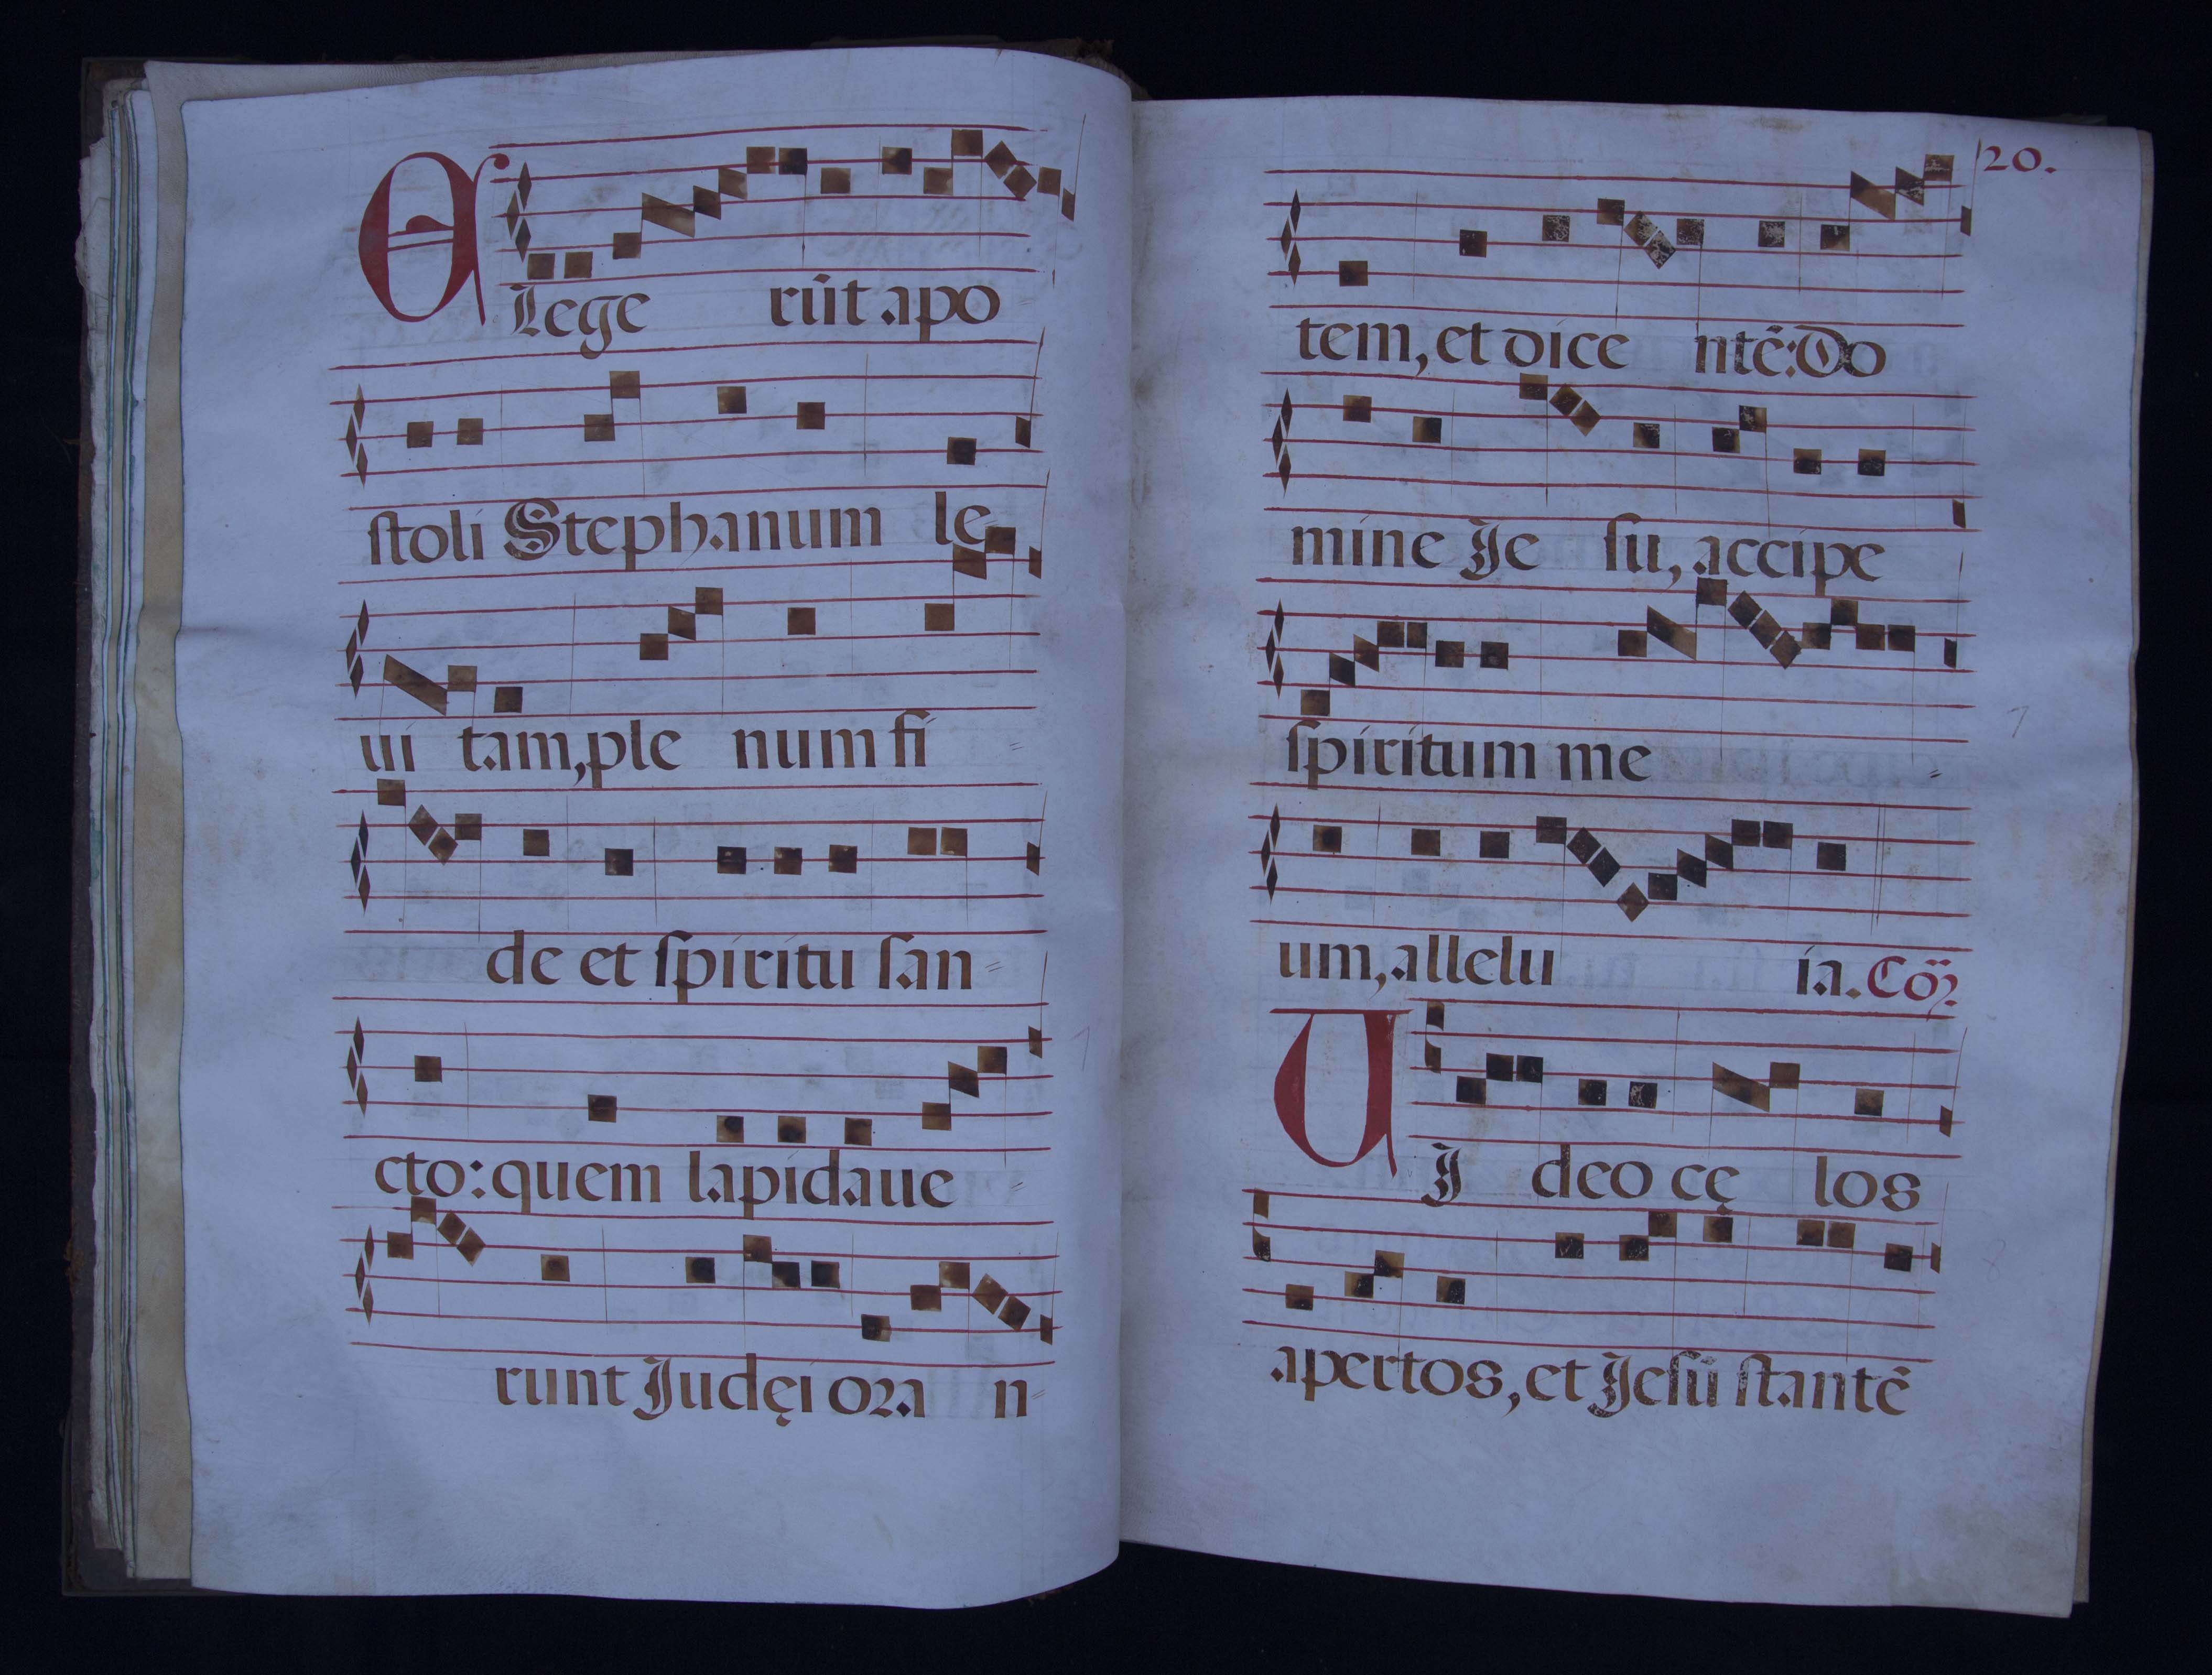 Elege rūt apo
stoli Stephanum le
ui tam, ple num fi
de et spiritu san=
cto: quem lapidaue
runt Judęi ora n=
20.
tem, et dice ntē: Do
mine Je su, accipe
spiritum me
um, allelu ia. Cõ
VJ deo cę los
apertos, et Jesū stantē